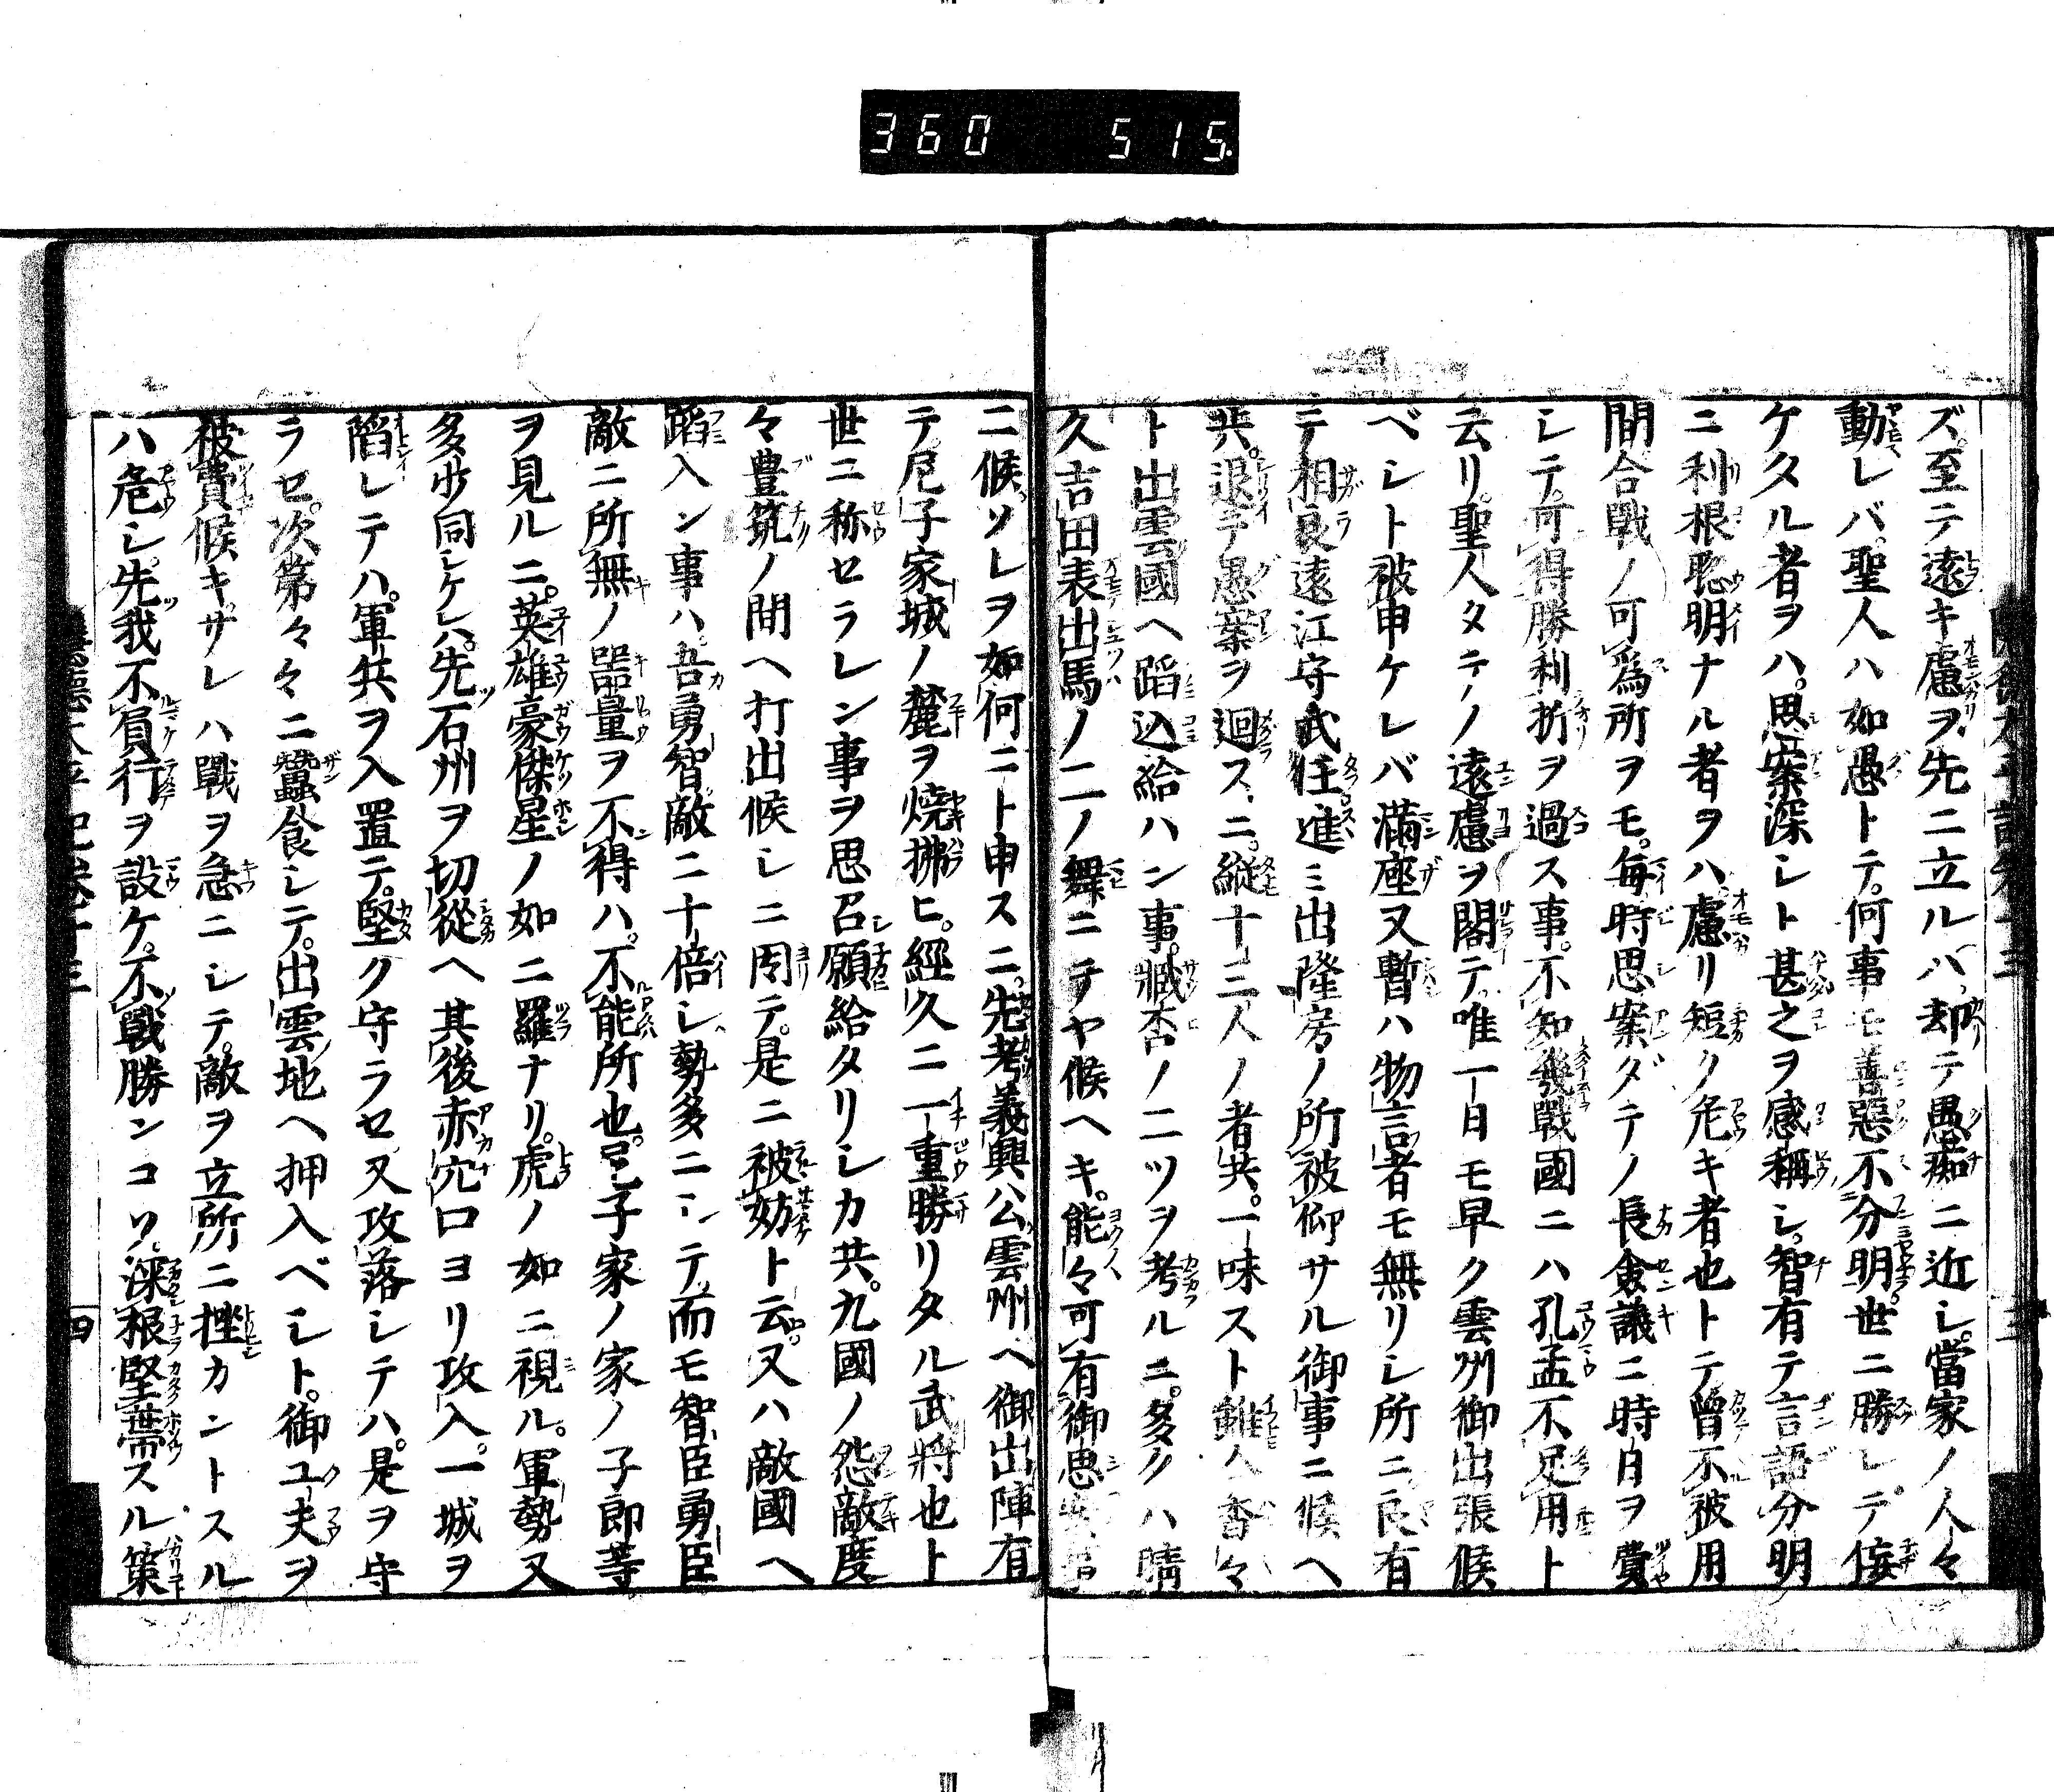 360 515
ズ。至テ遠キ慮ヲ先ニ立ルハ却テ愚痴ニ近シ。當家ノ人々
動レバ聖人ハ如愚トテ。何事モ善惡不分明世ニ勝レテ侫
ケタル者ヲハ。思案深シト甚之ヲ感稱シ。智有テ言語分明
ニ利根聡明ナル者ヲハ慮リ短ク危キ者也トテ曽不被用
間合戰ノ可爲所ヲモ。毎時思案ダテノ長僉議ニ時日ヲ費
シテ。可得勝利折ヲ過ス事。不知幾戰國ニハ孔孟不足用ト
云リ。聖人タテノ遠慮ヲ閣テ唯一日モ早ク雲州御出張候
ベシト被申ケレバ滿座又暫ハ物言者モ無リシ所ニ良有
テ相良遠江守武任進ミ出隆房ノ所被仰サル御事ニ候ヘ
共。退テ愚案ヲ迴スニ。縱十二人ノ者共。一味スト雖
ト出雲國ヘ蹈込給ハン事。臧否ノ二ツヲ考ルニ。多クハ晴
久吉田表出馬ノ二ノ舞ニテヤ候ヘキ。能々可有御思
ニ候ソレヲ如何ニト申スニ。先考義興公雲州ヘ御出陣有
テ。尼子家城ノ麓ヲ燒拂ヒ。經久ニ一重勝リタル武將也ト
世ニ称セラレン事ヲ思召願給タリシカ共。九國ノ怨敵度
々豊筑ノ間ヘ打出候シニ因テ。是ニ被妨ト云。又ハ敵國ヘ
蹈入ン事ハ。吾勇智敵ニ十倍シ勢多ニシテ。而モ智臣勇臣
敵ニ所無ノ噐量ヲ不得ハ。不能所也。尼子家ノ家ノ子郎等
ヲ見ルニ。英雄豪傑星ノ如ニ羅ナリ。虎ノ如ニ視ル。軍勢又
多少同シケレハ。先石州ヲ切從ヘ其後赤穴口ヨリ攻入。一城ヲ
陷レテハ。軍共ヲ入置テ。堅ク守ラセ又攻落シテハ。是ヲ守
ラセ。次第々々ニ蠶食シテ。出雲地ヘ押入ベシト。御工夫ヲ
被費候キ。サレハ戰ヲ急ニシテ。敵ヲ立所ニ挫カントスル
ハ危シ。先我不負行ヲ設ケ。不戰勝ンコソ。深根堅蔕スル策
四